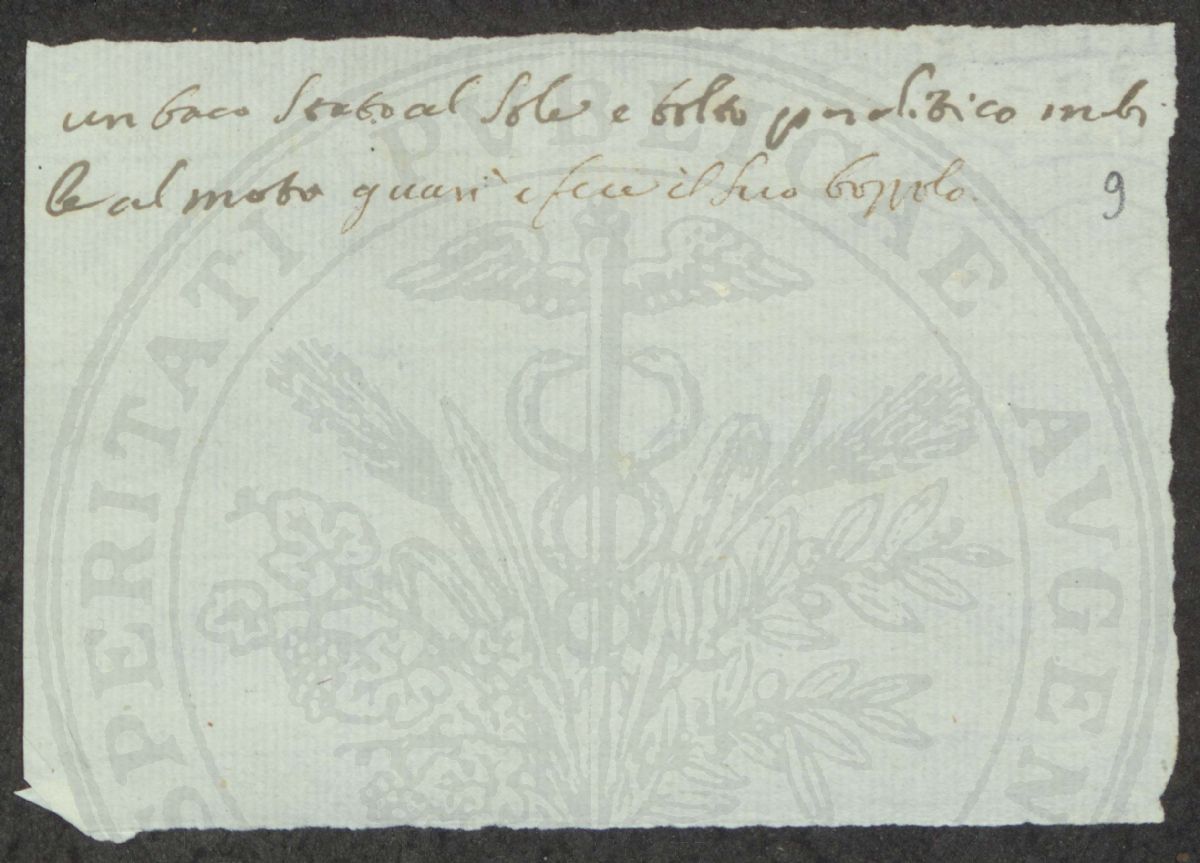 un baco stato al sole e tolto paralitico inabi
le al moto guarì e fece il suo bozzolo.
9
SPERITATI PVBLICAE AVGEN